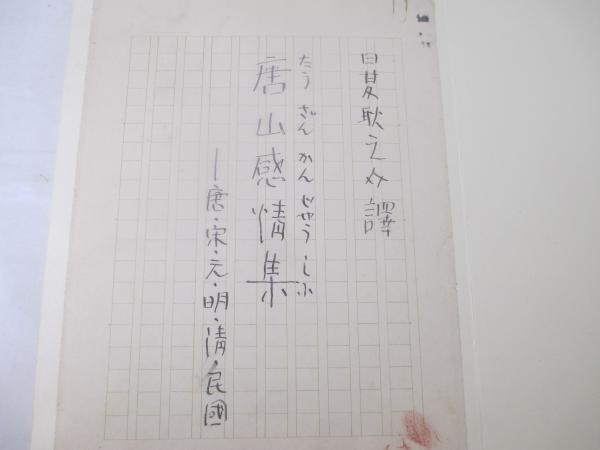 日夏耿之介譯
たうざんかんじやうしふ
唐山感情集
―唐・宋・元・明・清・民國